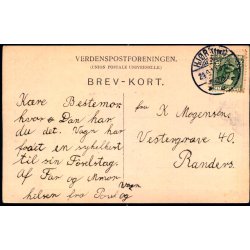 VERDENSPOSTFORENINGEN.
(UNION POSTALE UNIVERSELLE)
BREV-KORT.
Kære Bestemor
hvor Dan har
du det. Vagn har
faait en sykelbort
til sin Førelstag.
af Far og
fra og
Vagn
Fru K Mogensen
Vestergrave 40.
Randers.